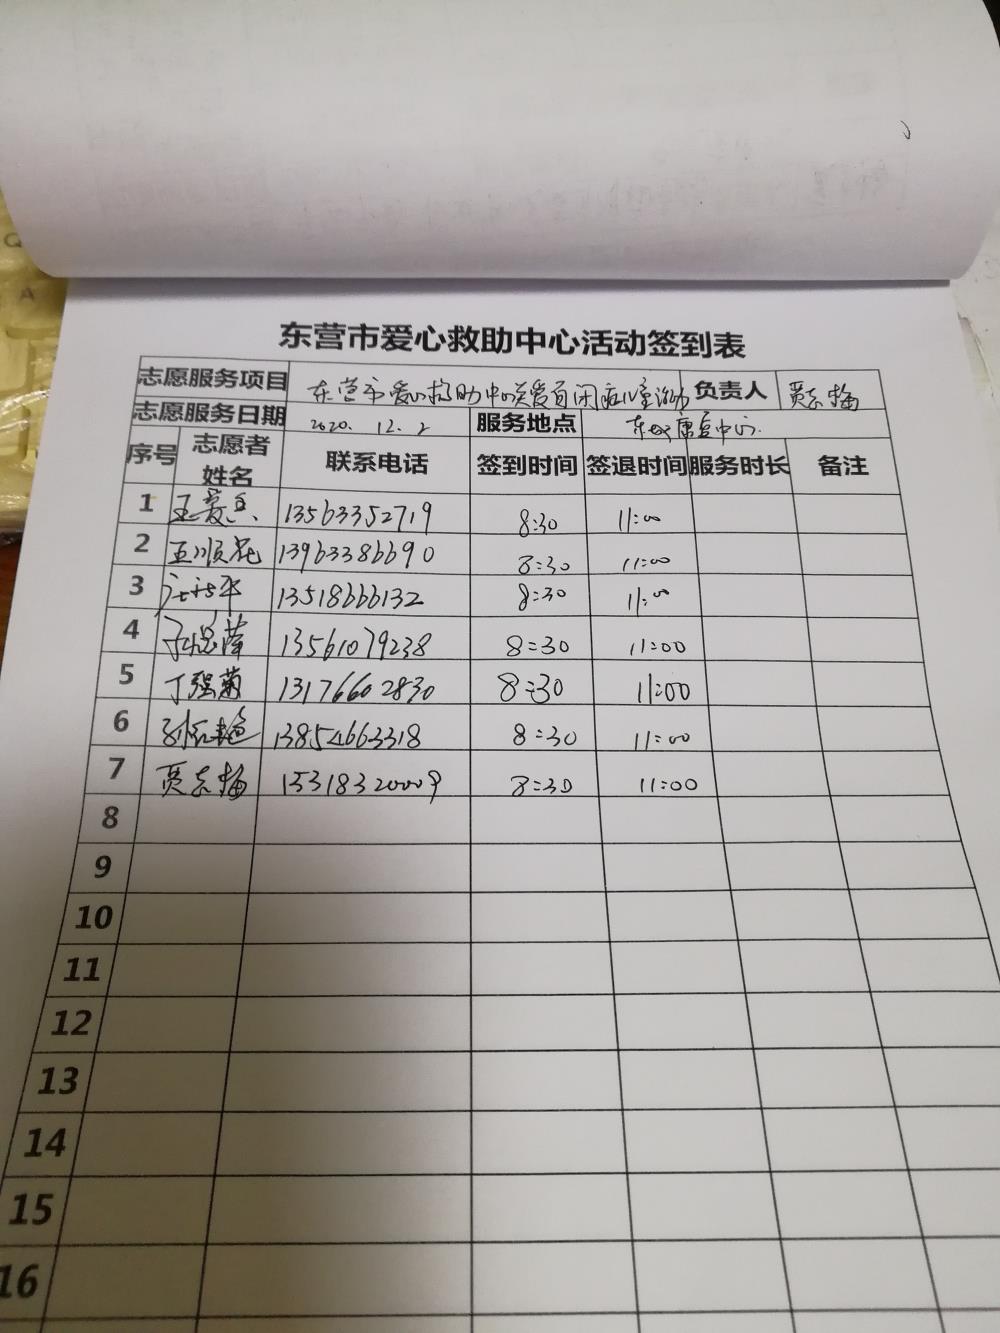 东营市爱心救助中心活动签到表
志愿服务项目 东营市爱心救助中心关爱自闭症儿童活动 负责人 贾冬梅
志愿服务日期 2020.12.2 服务地点 东城康复中心
序号 志愿者姓名 联系电话 签到时间 签退时间 服务时长 备注
1 王爱 13563352719 8:30 11:00
2 王顺花 13963386690 8:30 11:00
3 13518666132 8:30 11:00
4 13561079238 8:30 11:00
5 丁强菊 13176602830 8:30 11:00
6 13854663318 8:30 11:00
7 贾冬梅 15318320009 8:30 11:00
8
9
10
11
12
13
14
15
16
Q
A